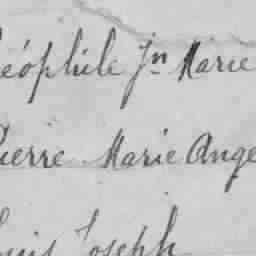 éophile Jn Marie
ierre Marie Ange
ouis Joseph